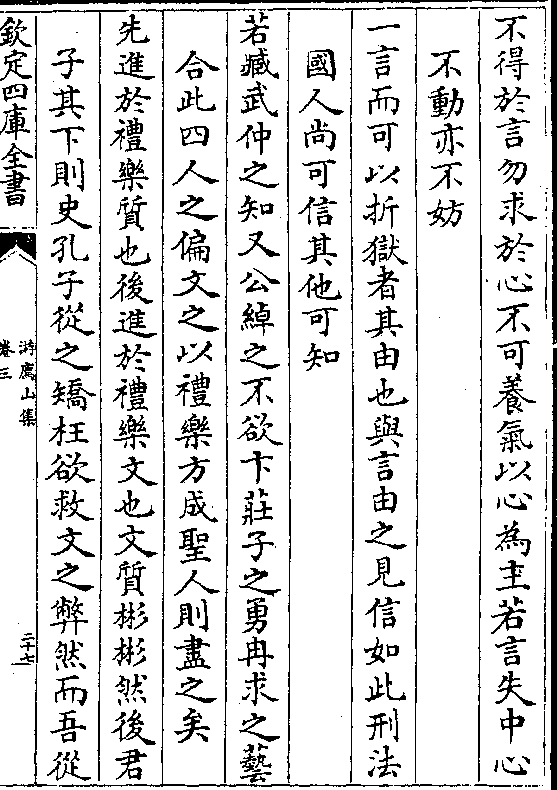 不得於言勿求於心不可養氣以心為主若言失中心
不動亦不妨
一言而可以折獄者其由也與言由之見信如此刑法
國人尚可信其他可知
若臧武仲之知又公綽之不欲卞莊子之勇冉求之藝
合此四人之偏文之以禮樂方成聖人則盡之矣
先進於禮樂質也後進於禮樂文也文質彬彬然後君
子其下則史孔子從之矯枉欲救文之弊然而吾從
欽定四庫全書
游廌山集
卷三
二十七